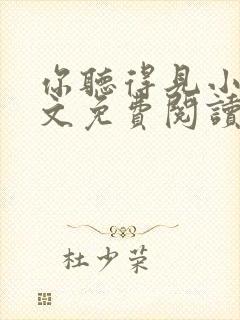 你聽得見小
文免費閱讀
杜少荣